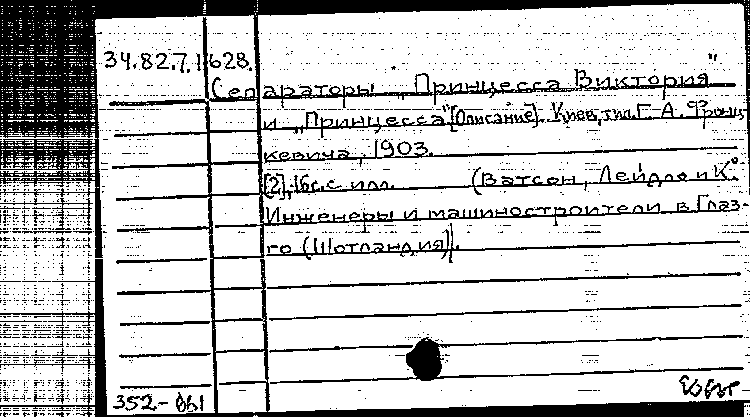 34.82.7.1628.
Сепараторы „Принцесса Виктория"
и „Принцесса" [Описание]. Киев, тип. Г. А. Фронц-
кевича, 1903.
[2], 16с. с илл. (Ватсон, Лейдло и К°.
Инженеры и машиностроители в Глаз-
го (Шотландия)).
352-061